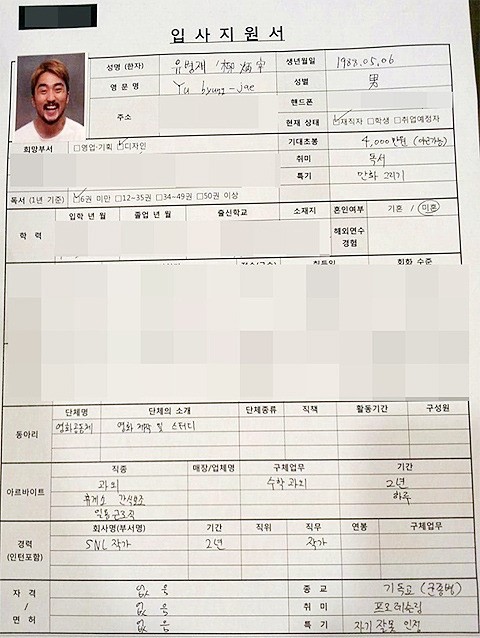 입사지원서
성명 (한자) 유병재 柳 炳宰 생년월일 1988.05.06
영문명 Yu byung-jae 성별 男
주소 핸드폰
현재 상태 ☑재직자 □학생 □취업예정자
희망부서 □영업·기획 ☑디자인 기대초봉 4,000만원 (야근가능)
취미 독서
특기 만화 그리기
독서 (1년 기준) ☑6권 미만 □12~35권 □34~49권 □50권 이상
학력 입학 년 월 졸업 년 월 출신학교 소재지 혼인여부 기혼 / 미혼
해외연수 경험
회화 수준
동아리 단체명 단체의 소개 단체종류 직책 활동기간 구성원
영화공동체 영화 제작 및 스터디
아르바이트 직종 매장/업체명 구체업무 기간
과외 수학 과외 2년
휴게소 간식보조 하루
일용근로직
경력 (인턴포함) 회사명(부서명) 기간 직위 직무 연봉 구체업무
SNL 작가 2년 작가
자격 / 면허 없음 종교 기독교 (군종병)
없음 취미 프로레슬링
없음 특기 자기 잘못 인정